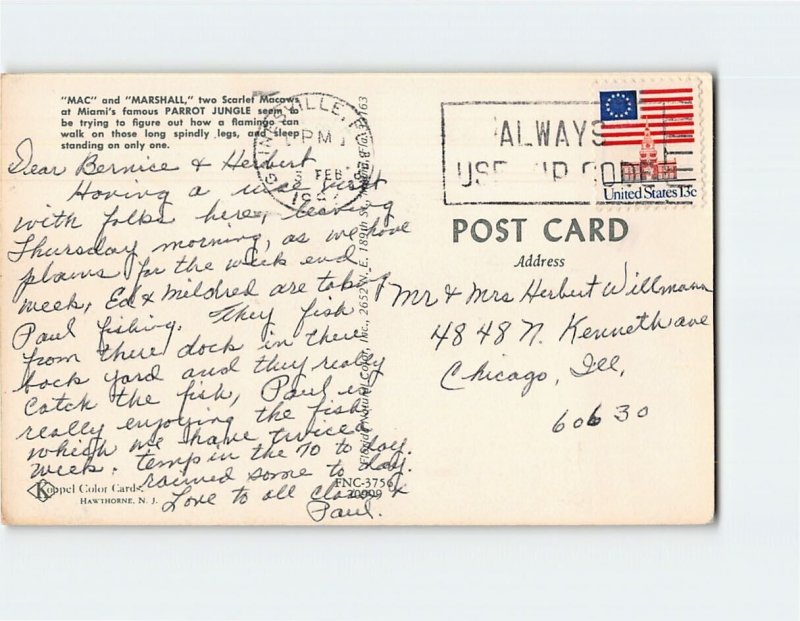 "MAC" and "MARSHALL," two Scarlet Macaws
at Miami's famous PARROT JUNGLE seem to
be trying to figure out how a flamingo can
walk on those long spindly legs, and sleep
standing on only one.
Dear Bernice & Herbert
Having a nice visit
with folks here, leaving
Thursday morning, as we have
plans for the week end
week, Ed & Mildred are
Paul fishing. They fish
from there dock in there
back yard and they really
catch the fish, Paul is
really enjoying the fish
which we have twice a
week. temp in the 70 to day.
rained some to day.
Love to all &
Paul.
Koppel Color Cards
HAWTHORNE, N. J.
FNC-3756
30999
Color, Inc., 2652 N. E. 189th St.,
PM
FEB
ALWAYS
USE ZIP CODE
United States 13c
POST CARD
Address
Mr & Mrs Herbert Willmann
4848 N. Kenneth ave
Chicago, Ill,
60630